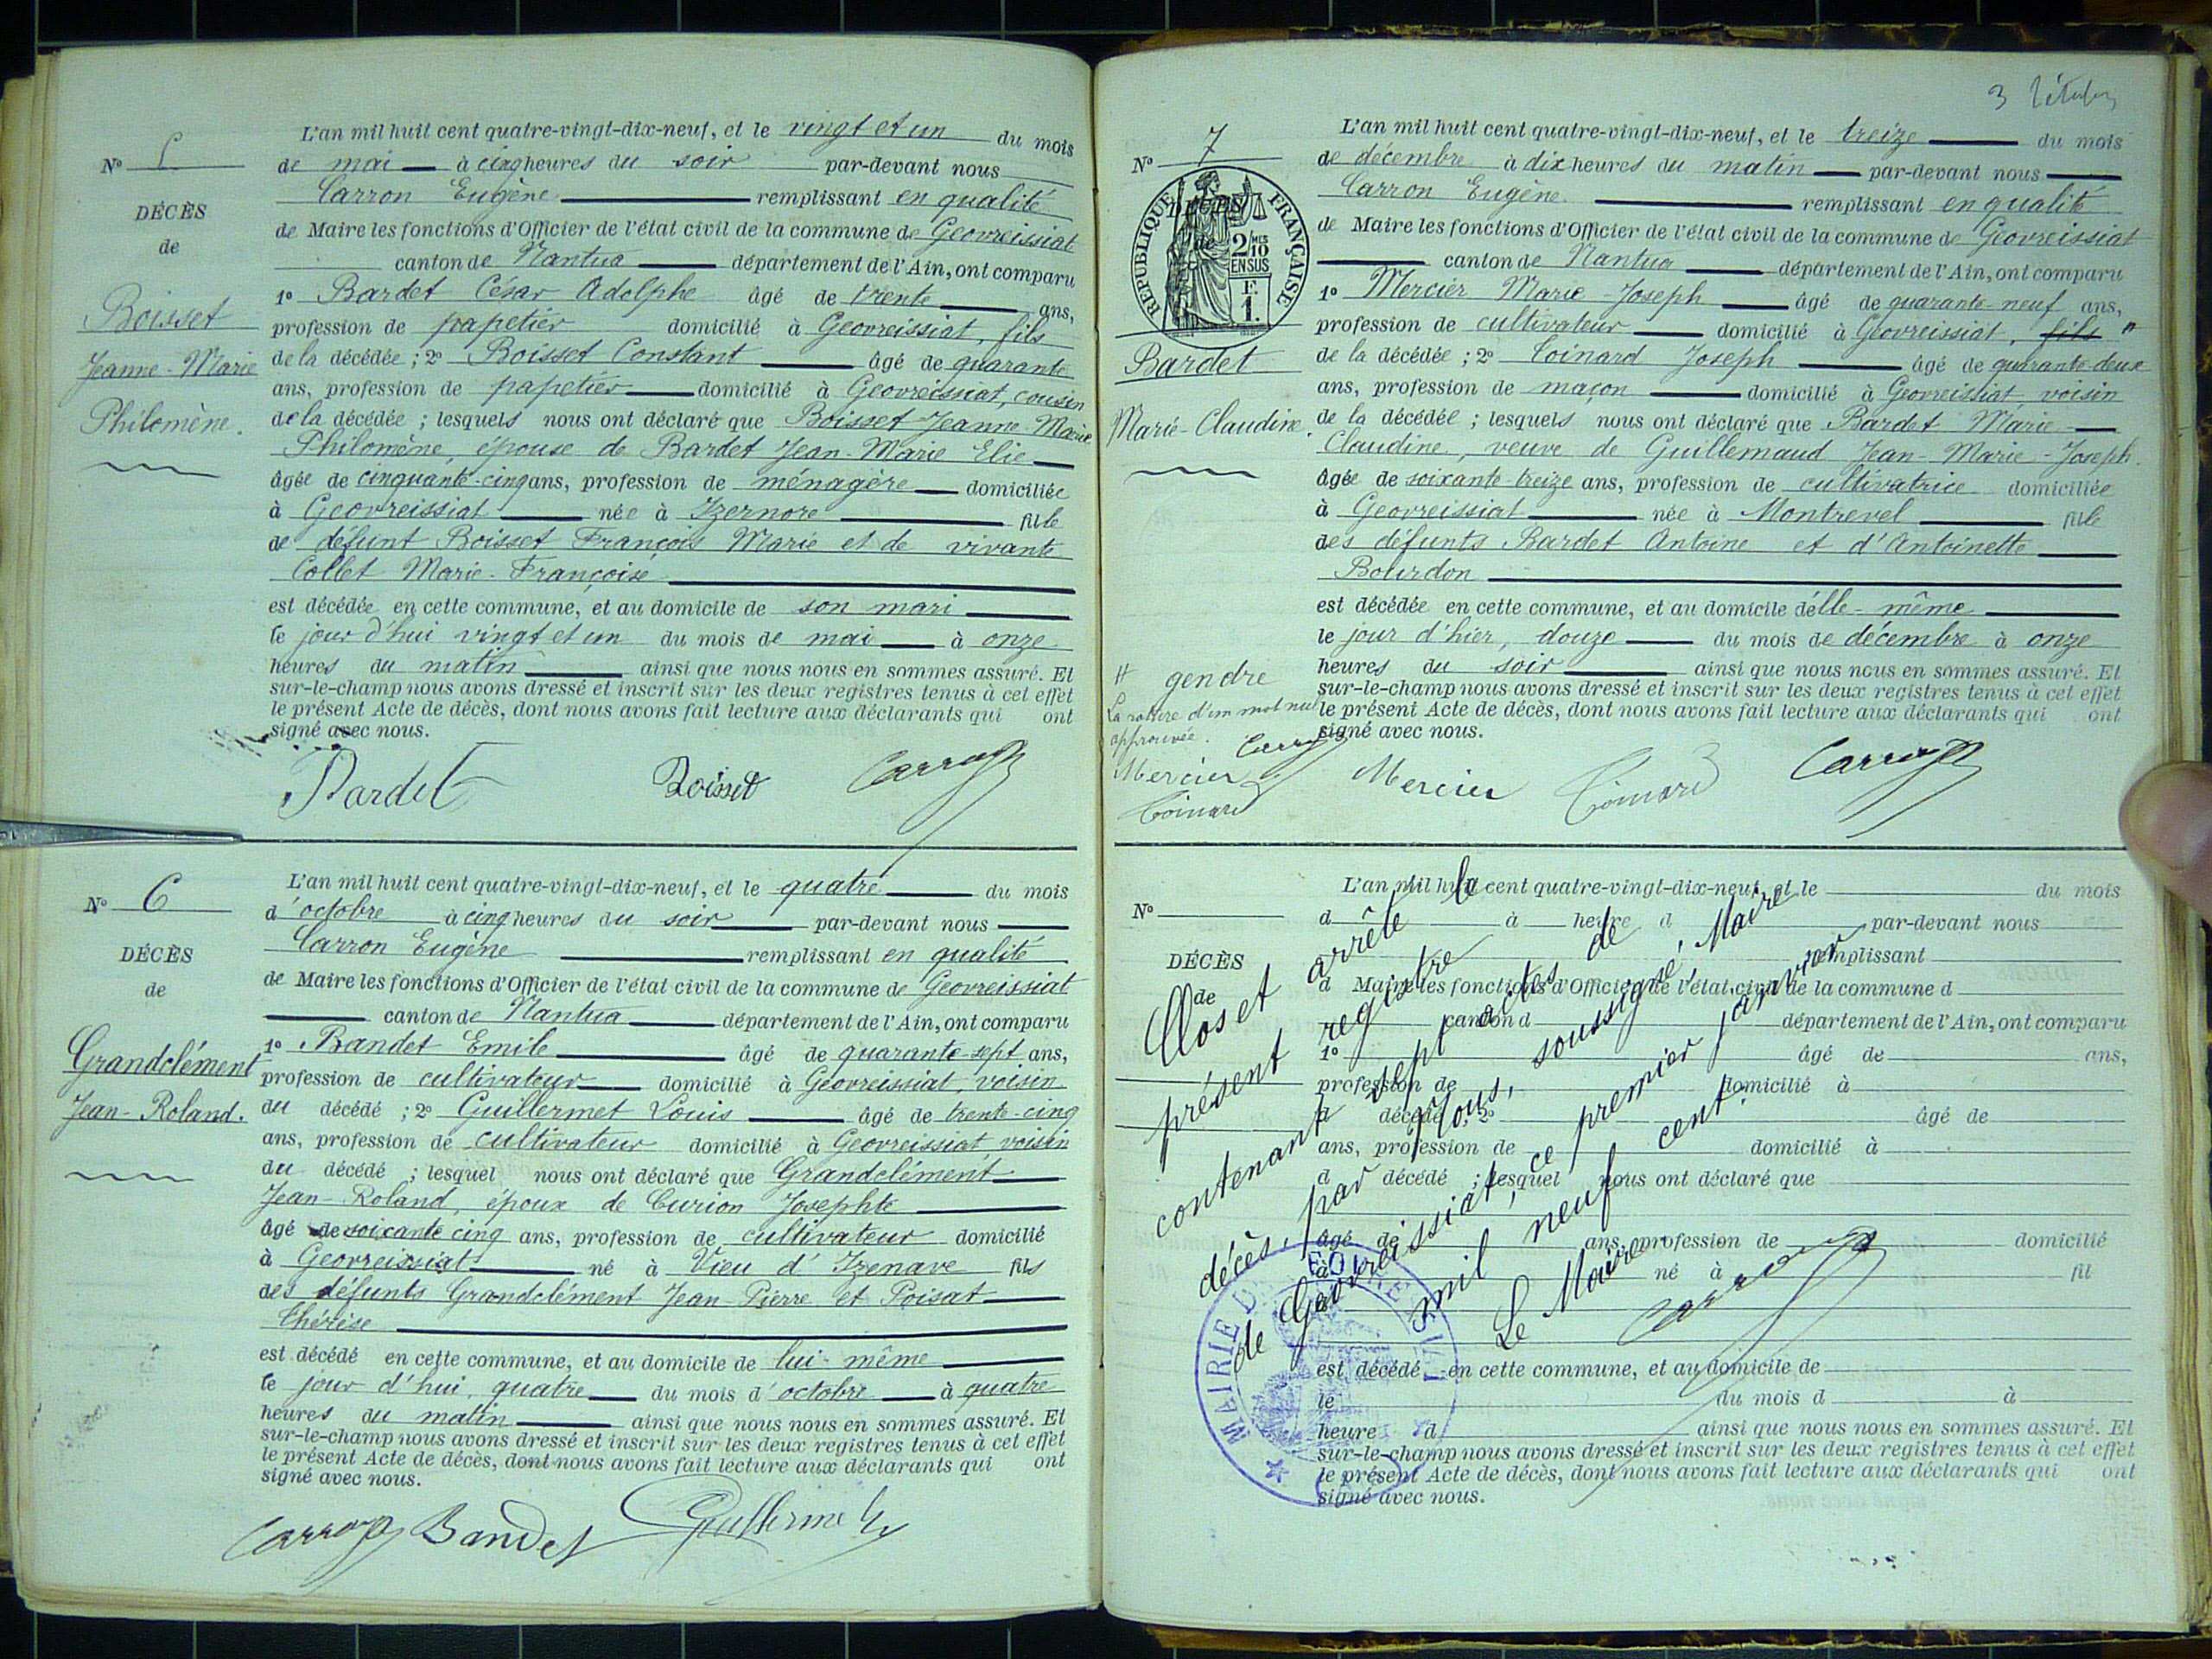 L'an mil huit cent quatre-vingt-dix-neuf, et le vingt et un du mois
de mai à cinq heures du soir par-devant nous
Carron Eugène remplissant en qualité
de Maire les fonctions d'Officier de l'état civil de la commune de Geovreissiat
canton de Nantua département de l'Ain, ont comparu
1° Bardet César Adolphe âgé de trente ans,
profession de papetier domicilié à Geovreissiat, fils
de la décédée ; 2° Boisset Constant âgé de quarante
ans, profession de papetier domicilié à Geovreissiat, cousin
de la décédée ; lesquels nous ont déclaré que Boisset Jeanne-Marie
Philomène, épouse de Bardet Jean-Marie Elie
âgée de cinquante-cinq ans, profession de ménagère domiciliée
à Geovreissiat née à Izernore fille
de défunt Boisset François Marie et de vivante
Collet Marie-Françoise
est décédée en cette commune, et au domicile de son mari
le jour d'hui vingt et un du mois de mai à onze
heures du matin ainsi que nous nous en sommes assuré. Et
sur-le-champ nous avons dressé et inscrit sur les deux registres tenus à cet effet
le présent Acte de décès, dont nous avons fait lecture aux déclarants qui ont
signé avec nous.
Bardet Boisset Carron
N° 5
DÉCÈS
de
Boisset
Jeanne-Marie
Philomène.
N° 6
DÉCÈS
de
Grandclément
Jean-Roland.
L'an mil huit cent quatre-vingt-dix-neuf, et le quatre du mois
d'octobre à cinq heures du soir par-devant nous
Carron Eugène remplissant en qualité
de Maire les fonctions d'Officier de l'état civil de la commune de Geovreissiat
canton de Nantua département de l'Ain, ont comparu
1° Bandet Emile âgé de quarante-sept ans,
profession de cultivateur domicilié à Geovreissiat, voisin
du décédé ; 2° Guillermet Louis âgé de trente-cinq
ans, profession de cultivateur domicilié à Geovreissiat voisin
du décédé ; lesquel nous ont déclaré que Grandclément
Jean-Roland, époux de Curion Josephte
âgé de soixante cinq ans, profession de cultivateur domicilié
à Geovreissiat né à Vieu d'Izenave fils
des défunts Grandclément Jean-Pierre et Poisat
Thérèse
est décédé en cette commune, et au domicile de lui-même
le jour d'hui, quatre du mois d'octobre à quatre
heures du matin ainsi que nous nous en sommes assuré. Et
sur-le-champ nous avons dressé et inscrit sur les deux registres tenus à cet effet
le présent Acte de décès, dont nous avons fait lecture aux déclarants qui ont
signé avec nous.
Carron Bandet Guillermet
N° 7
DÉCÈS
de
RÉPUBLIQUE FRANÇAISE
2/10 MES
EN SUS
F.
1.
Bardet
Marie-Claudine.
L'an mil huit cent quatre-vingt-dix-neuf, et le treize du mois
de décembre à dix heures du matin par-devant nous
Carron Eugène remplissant en qualité
de Maire les fonctions d'Officier de l'état civil de la commune de Geovreissiat
canton de Nantua département de l'Ain, ont comparu
1° Mercier Marie-Joseph âgé de quarante-neuf ans,
profession de cultivateur domicilié à Geovreissiat, fils #
de la décédée ; 2° Coinard Joseph âgé de quarante-deux
ans, profession de maçon domicilié à Geovreissiat voisin
de la décédée ; lesquels nous ont déclaré que Bardet Marie
Claudine, veuve de Guillemaud Jean-Marie-Joseph.
âgée de soixante-treize ans, profession de cultivatrice domiciliée
à Geovreissiat née à Montrevel fille
des défunts Bardet Antoine et d'Antoinette
Bourdon
est décédée en cette commune, et au domicile d'elle-même
le jour d'hier, douze du mois de décembre à onze
heures du soir ainsi que nous nous en sommes assuré. Et
sur-le-champ nous avons dressé et inscrit sur les deux registres tenus à cet effet
le présent Acte de décès, dont nous avons fait lecture aux déclarants qui ont
signé avec nous.
# gendre
La rature d'un mot nul
approuvée.
Carron
Mercier
Coinard
Mercier Coinard Carron
N°
DÉCÈS
de
L'an mil huit cent quatre-vingt-dix-neuf, et le du mois
d à heure d par-devant nous
remplissant
d Maire les fonctions d'Officier de l'état civil de la commune d
canton d département de l'Ain, ont comparu
1° âgé de ans,
profession de domicilié à
d décédé ; 2° âgé de
ans, profession de domicilié à
d décédé ; lesquel nous ont déclaré que
âgé de ans, profession de domicilié
à né à fil
est décédé en cette commune, et au domicile de
le du mois d à
heure d ainsi que nous nous en sommes assuré. Et
sur-le-champ nous avons dressé et inscrit sur les deux registres tenus à cet effet
le présent Acte de décès, dont nous avons fait lecture aux déclarants qui ont
signé avec nous.
Clos et arrêté le
présent registre
contenant sept actes de
décès, par Nous, soussigné, Maire
de Geovreissiat, ce premier janvier
mil neuf cent.
Le Maire
Carron
MAIRIE DE